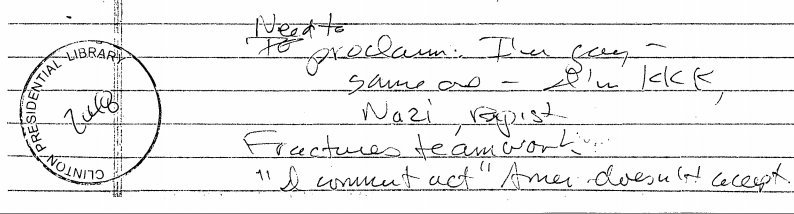 Need to
to
proclaim: I'm gay –
same as – I'm KKK,
Nazi, rapist
Fractures teamwork
"I commit act" Amer. doesn't accept
CLINTON PRESIDENTIAL LIBRARY